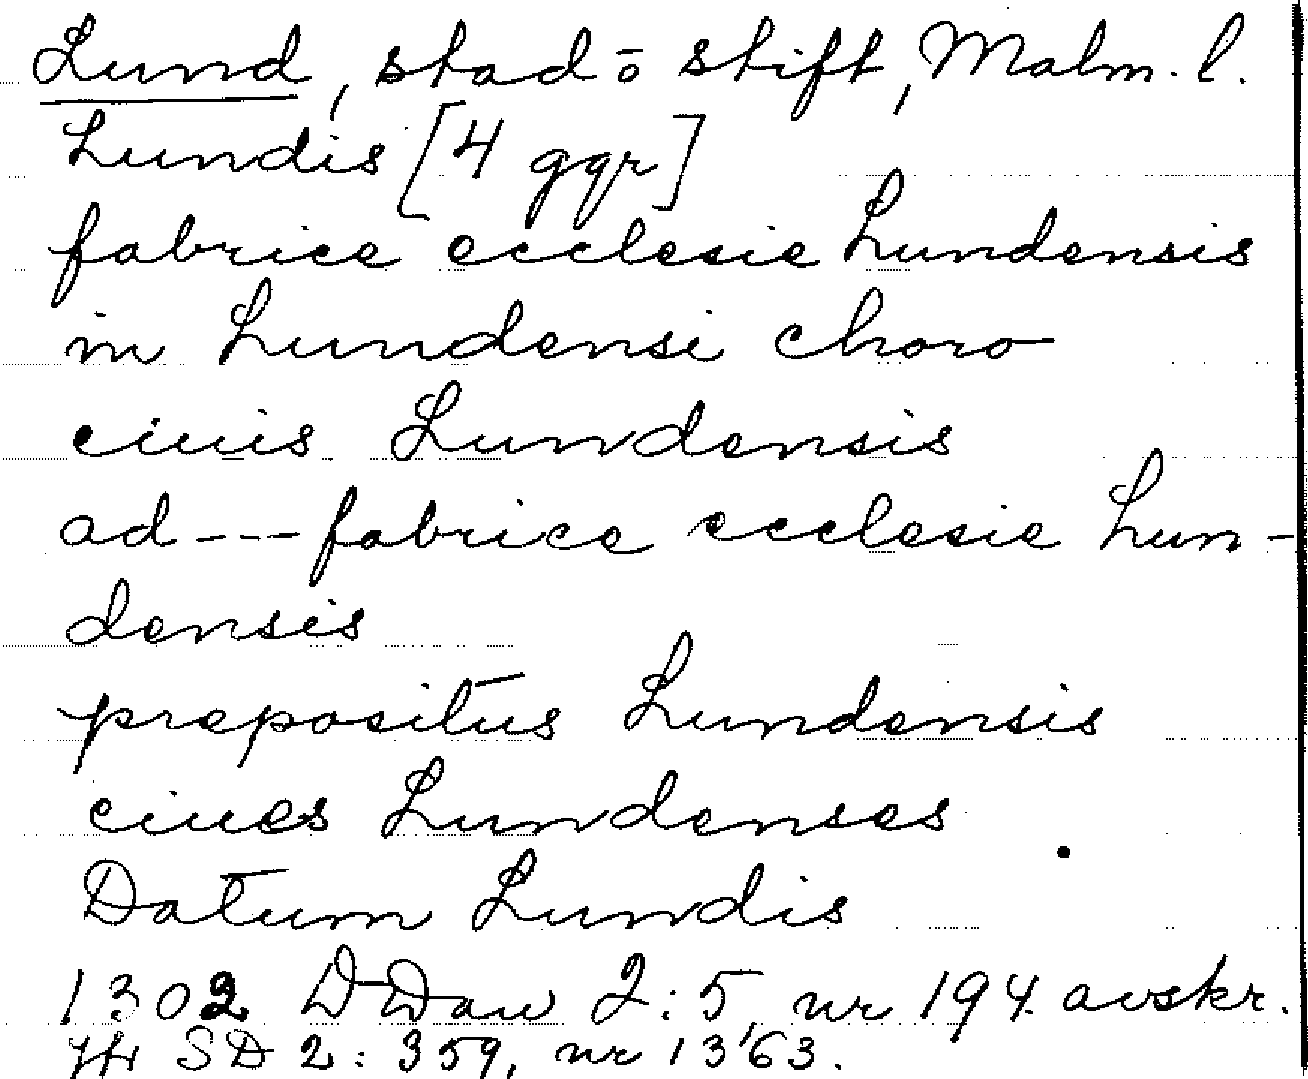 Lund, stad o stift, Malm. l.
Lundis [4 ggr]
fabrice ecclesie Lundensis
in Lundensi choro
ciuis Lundensis
ad --- fabrice ecclesie Lun-
densis
prepositus Lundensis
ciues Lundenses
Datum Lundis
1302 DDan 2:5, nr 194 avskr.
Jfr SD 2: 359, nr 1363.